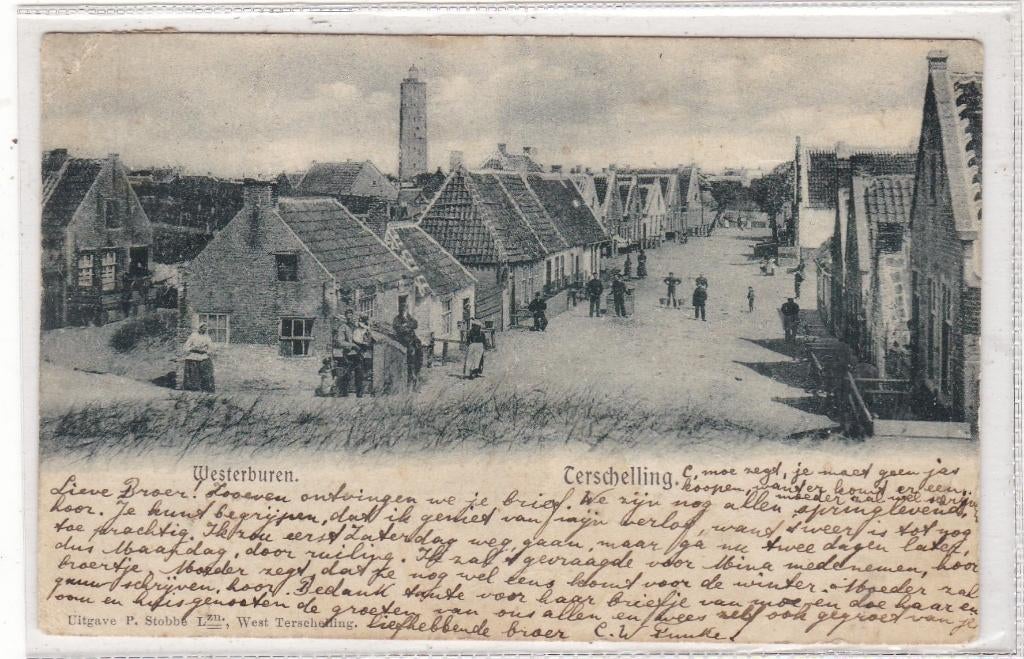 Westerburen.
Terschelling.
C, moe zegt, je moet geen jas
koopen, want er komt er een,
moeder zal wel schrijven
Lieve Broer! Zooeven ontvingen we je brief. We zijn nog allen springlevend,
hoor. Je kunt begrijpen, dat ik geniet van mijn verlof, want 't weer is tot nog
toe prachtig. Ik zou eerst Zaterdag weg gaan, maar ga nu twee dagen later
dus Maandag, door ruiling. Ik zal 't gevraagde voor Mina medenemen, hoor
broertje. Moeder zegt, dat ze nog wel eens komt voor de winter. Moeder zal
gauw schrijven, hoor. Bedank tante voor haar briefje van moe en doe haar en
oom en huisgenooten de groeten van ons allen en wees zelf ook gegroet van je
liefhebbende broer C. W.
Uitgave P. Stobbe Lzn., West Terschelling.